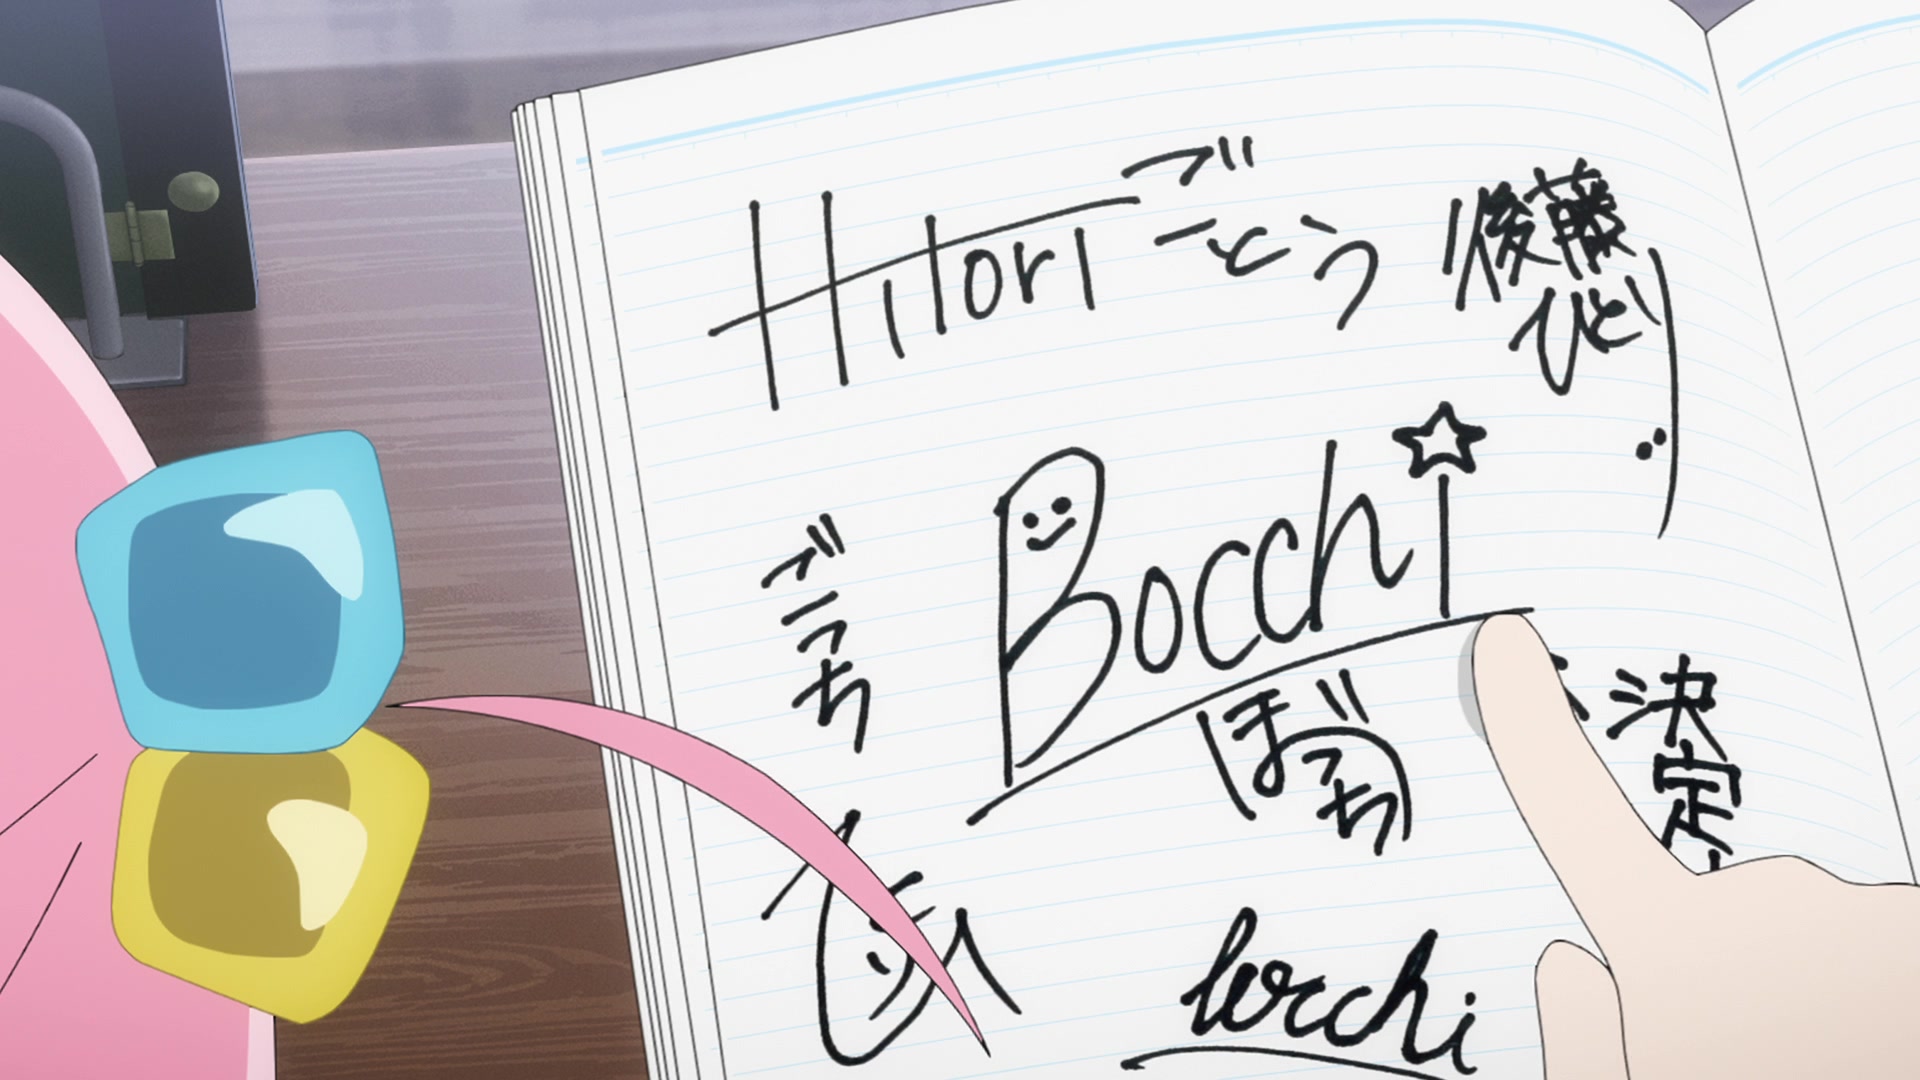 Hitori ごとう
後藤
ひとり
Bocchi
ごっち
ぼっち
決定
Bocchi